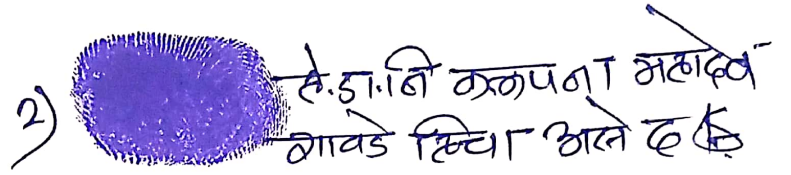 २) ले.डा.नि कल्पना महादेव
गावडे हिचा असे द